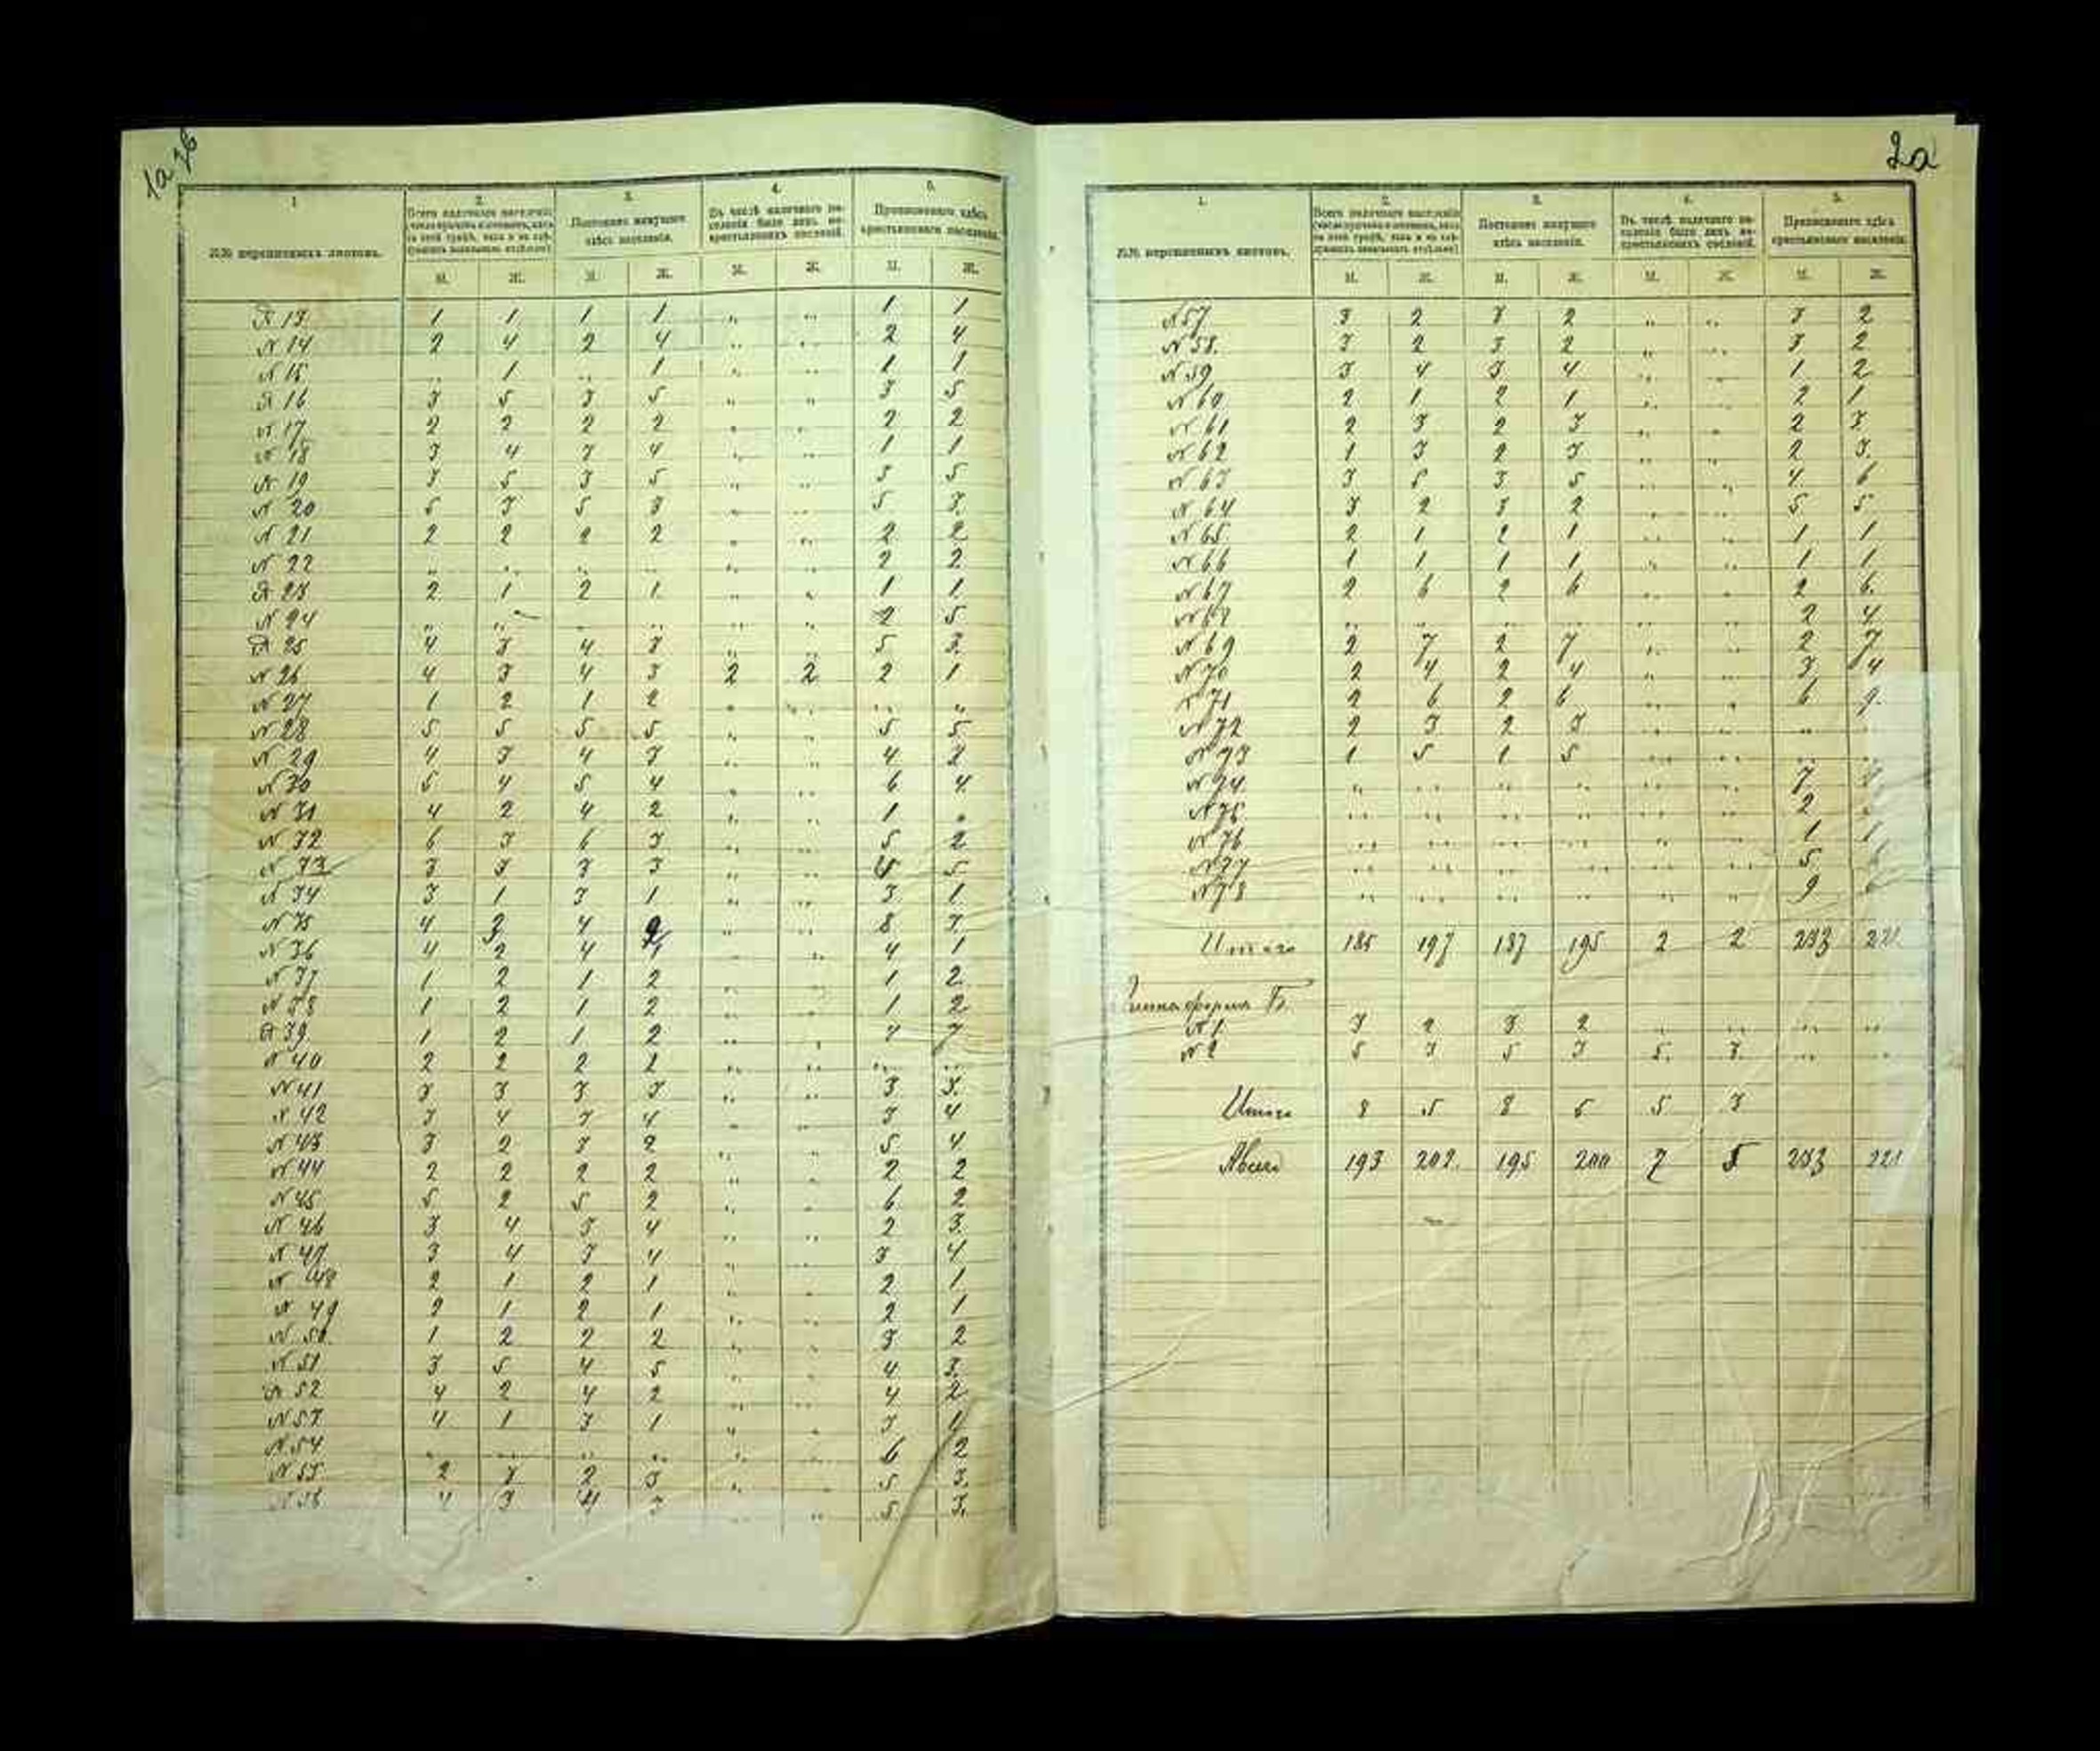 1а 2б
1
2.
3.
4.
5.
№№ переписныхъ листовъ.
Всего наличнаго населенія
Постоянно живущаго здѣсь населенія.
Въ числѣ наличнаго населенія было лицъ некрестьянскихъ сословій.
Приписаннаго здѣсь крестьянскаго населенія.
М. Ж. М. Ж. М. Ж. М. Ж.
№ 13 1 1 1 1 „ „ 1 1
№ 14 2 4 2 4 „ „ 2 4
№ 15 „ 1 „ 1 „ „ 1 1
№ 16 3 5 3 5 „ „ 3 5
№ 17 2 2 2 2 „ „ 2 2
№ 18 3 4 3 4 „ „ 1 1
№ 19 3 5 3 5 „ „ 3 5
№ 20 5 3 5 3 „ „ 5 3
№ 21 2 2 2 2 „ „ 2 2
№ 22 „ „ „ „ „ „ 2 2
№ 23 2 1 2 1 „ „ 1 1
№ 24 „ „ „ „ „ „ 2 5
№ 25 4 3 4 3 „ „ 5 3
№ 26 4 3 4 3 2 2 2 1
№ 27 1 2 1 2 „ „ „ „
№ 28 5 5 5 5 „ „ 5 5
№ 29 4 3 4 3 „ „ 4 2
№ 30 5 4 5 4 „ „ 6 4
№ 31 4 2 4 2 „ „ 1 „
№ 32 6 3 6 3 „ „ 5 2
№ 33 3 3 3 3 „ „ 5
№ 34 3 1 3 1 „ „ 3 1
№ 35 4 3 4 2 „ „ 8 3
№ 36 4 2 4 „ „ 4 1
№ 37 1 2 1 2 „ „ 1 2
№ 38 1 2 1 2 „ „ 1 2
№ 39 1 2 1 2 „ „ 7
№ 40 2 2 2 2 „ „ „ „
№ 41 3 3 3 3 „ „ 3 3
№ 42 3 4 3 4 „ „ 3 4
№ 43 3 2 3 2 „ „ 5 4
№ 44 2 2 2 2 „ „ 2 2
№ 45 5 2 5 2 „ „ 6 2
№ 46 3 4 3 4 „ „ 2 3
№ 47 3 4 3 4 „ „ 3 4
№ 48 2 1 2 1 „ „ 2 1
№ 49 2 1 2 1 „ „ 2 1
№ 50 1 2 2 2 „ „ 3 2
№ 51 3 5 4 5 „ „ 4 3
№ 52 4 2 4 2 „ „ 4 2
№ 53 4 1 3 1 „ „ 3 1
№ 54 „ „ „ „ „ „ 6 2
№ 55 2 3 2 3 „ „ 5 3
№ 56 4 3 4 3 „ „ 5 3
2а
1.
2.
3.
4.
5.
№№ переписныхъ листовъ.
Всего наличнаго населенія
Постоянно живущаго здѣсь населенія.
Въ числѣ наличнаго населенія было лицъ некрестьянскихъ сословій.
Приписаннаго здѣсь крестьянскаго населенія.
М. Ж. М. Ж. М. Ж. М. Ж.
№ 57 3 2 3 2 „ „ 3 2
№ 58 3 2 3 2 „ „ 3 2
№ 59 3 4 3 4 „ „ 1 2
№ 60 2 1 2 1 „ „ 2 1
№ 61 2 3 2 3 „ „ 2 3
№ 62 1 3 2 3 „ „ 2 3
№ 63 3 5 3 5 „ „ 4 6
№ 64 3 2 3 2 „ „ 5 5
№ 65 2 1 2 1 „ „ 1 1
№ 66 1 1 1 1 „ „ 1 1
№ 67 2 6 2 6 „ „ 2 6
№ 68 „ „ „ „ „ „ 2 4
№ 69 2 7 2 7 „ „ 2 7
№ 70 2 4 2 4 „ „ 3 4
№ 71 2 6 2 6 „ „ 6 9
№ 72 2 3 2 3 „ „ „
№ 73 1 5 1 5 „ „ „ „
№ 74 „ „ „ „ „ „ 7
№ 75 „ „ „ „ „ „ 2 „
№ 76 „ „ „ „ „ „ 1 1
№ 77 „ „ „ „ „ „ 5
№ 78 „ „ „ „ „ „ 9
Итого 185 197 187 195 2 2 233 221
форма Б.
№ 1 3 2 3 2 „ „ „ „
№ 2 5 3 5 3 5 3 „ „
Итого 8 5 8 5 5 3
Всего 193 202 195 200 7 5 233 221